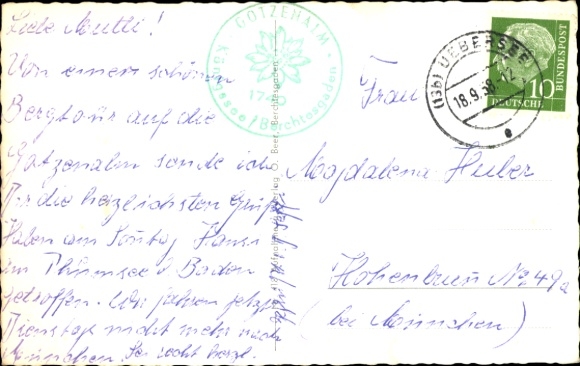 Liebe Mutti!
Von einem schönen
Bergtour auf die
Gotzenalm sende ich
Dir die herzlichsten Grüße
Haben am Sonntag Hansi
im Thumsee b Baden
getroffen. Wir fahren jetzt
Dienstag nicht mehr nach
München Sei recht herzl.
GOTZENALM
Königssee/Berchtesgaden
Verlag O. Beer, Berchtesgaden
(13b) UEBERSEE
18.9.58-12
e
10
DEUTSCHE
BUNDESPOST
Frau
Magdalena Huber
Hohenbrunn No 49a
(bei München)